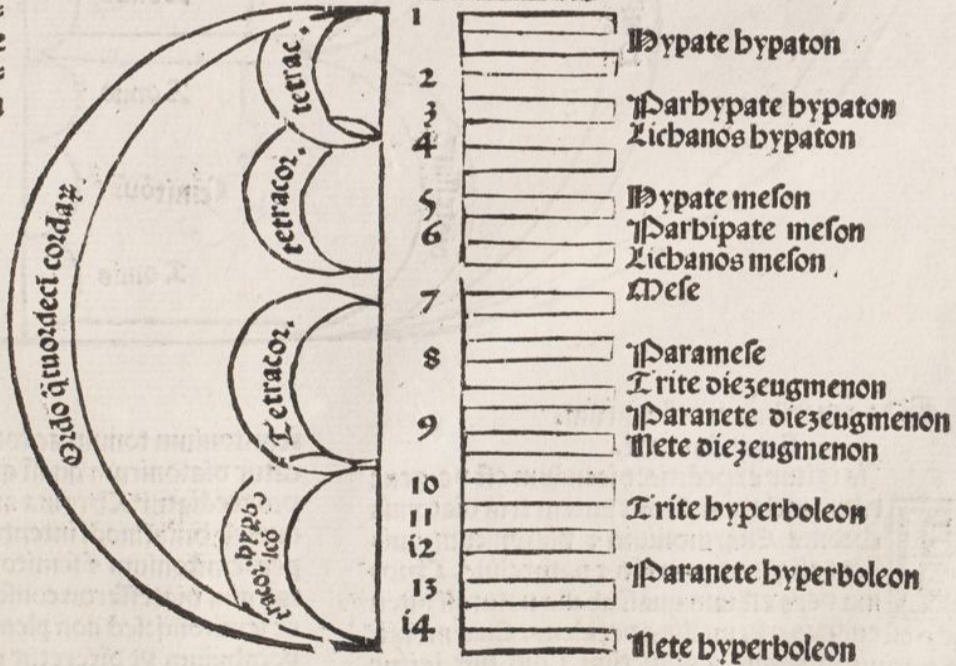 Ordo q̃tuordeci cordaꝝ
tetrac.
tetracor.
Tetracor.
1
2
3
4
5
6
7
8
9
10
11
12
13
14
Hypate hypaton
Parhypate hypaton
Lichanos hypaton
Hypate meson
Parhipate meson
Lichanos meson
Mese
Paramese
Trite diezeugmenon
Paranete diezeugmenon
Nete diezeugmenon
Trite hyperboleon
Paranete hyperboleon
Nete hyperboleon